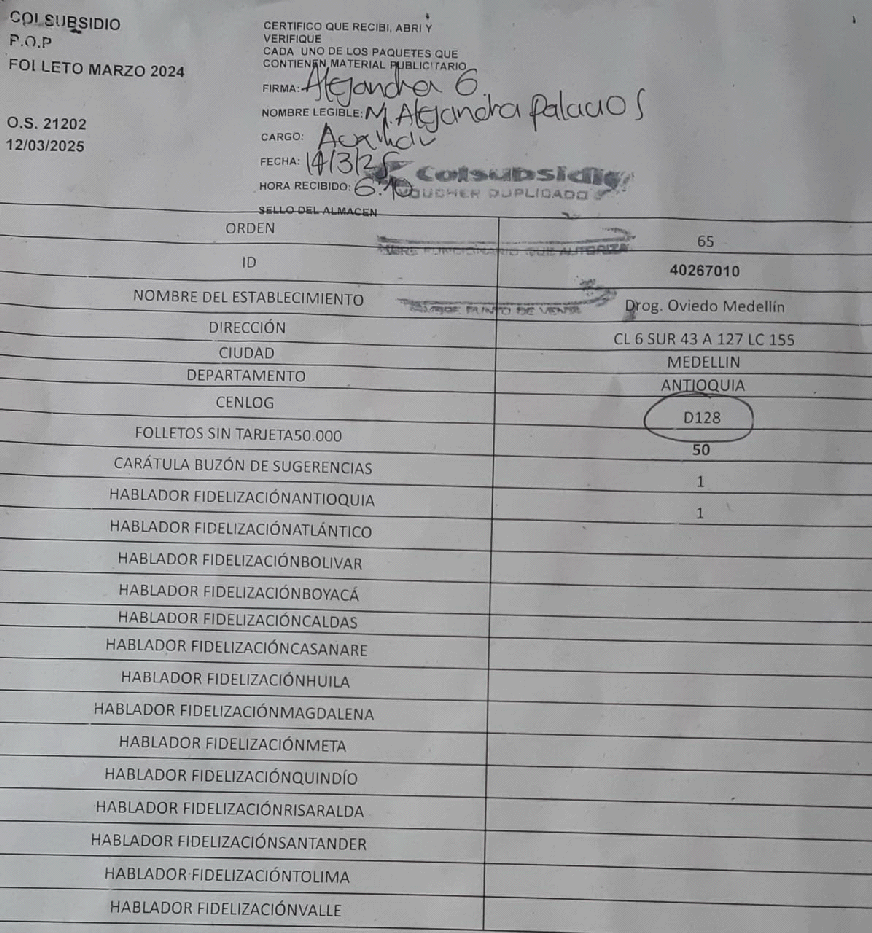 COLSUBSIDIO
P.O.P
FOLLETO MARZO 2024
O.S. 21202
12/03/2025
CERTIFICO QUE RECIBI, ABRI Y
VERIFIQUE
CADA UNO DE LOS PAQUETES QUE
CONTIENEN MATERIAL PUBLICITARIO
FIRMA: Alejandra G
NOMBRE LEGIBLE: M. Alejandra Palacios
CARGO:
FECHA: 14/3/25
HORA RECIBIDO:
SELLO DEL ALMACEN
Colsubsidio
VOUCHER DUPLICADO
ORDEN 65
ID 40267010
NOMBRE DEL ESTABLECIMIENTO Drog. Oviedo Medellín
PUNTO DE VENTA
DIRECCIÓN CL 6 SUR 43 A 127 LC 155
CIUDAD MEDELLIN
DEPARTAMENTO ANTIOQUIA
CENLOG D128
FOLLETOS SIN TARJETA50.000 50
CARÁTULA BUZÓN DE SUGERENCIAS 1
HABLADOR FIDELIZACIÓNANTIOQUIA 1
HABLADOR FIDELIZACIÓNATLÁNTICO
HABLADOR FIDELIZACIÓNBOLIVAR
HABLADOR FIDELIZACIÓNBOYACÁ
HABLADOR FIDELIZACIÓNCALDAS
HABLADOR FIDELIZACIÓNCASANARE
HABLADOR FIDELIZACIÓNHUILA
HABLADOR FIDELIZACIÓNMAGDALENA
HABLADOR FIDELIZACIÓNMETA
HABLADOR FIDELIZACIÓNQUINDÍO
HABLADOR FIDELIZACIÓNRISARALDA
HABLADOR FIDELIZACIÓNSANTANDER
HABLADOR FIDELIZACIÓNTOLIMA
HABLADOR FIDELIZACIÓNVALLE